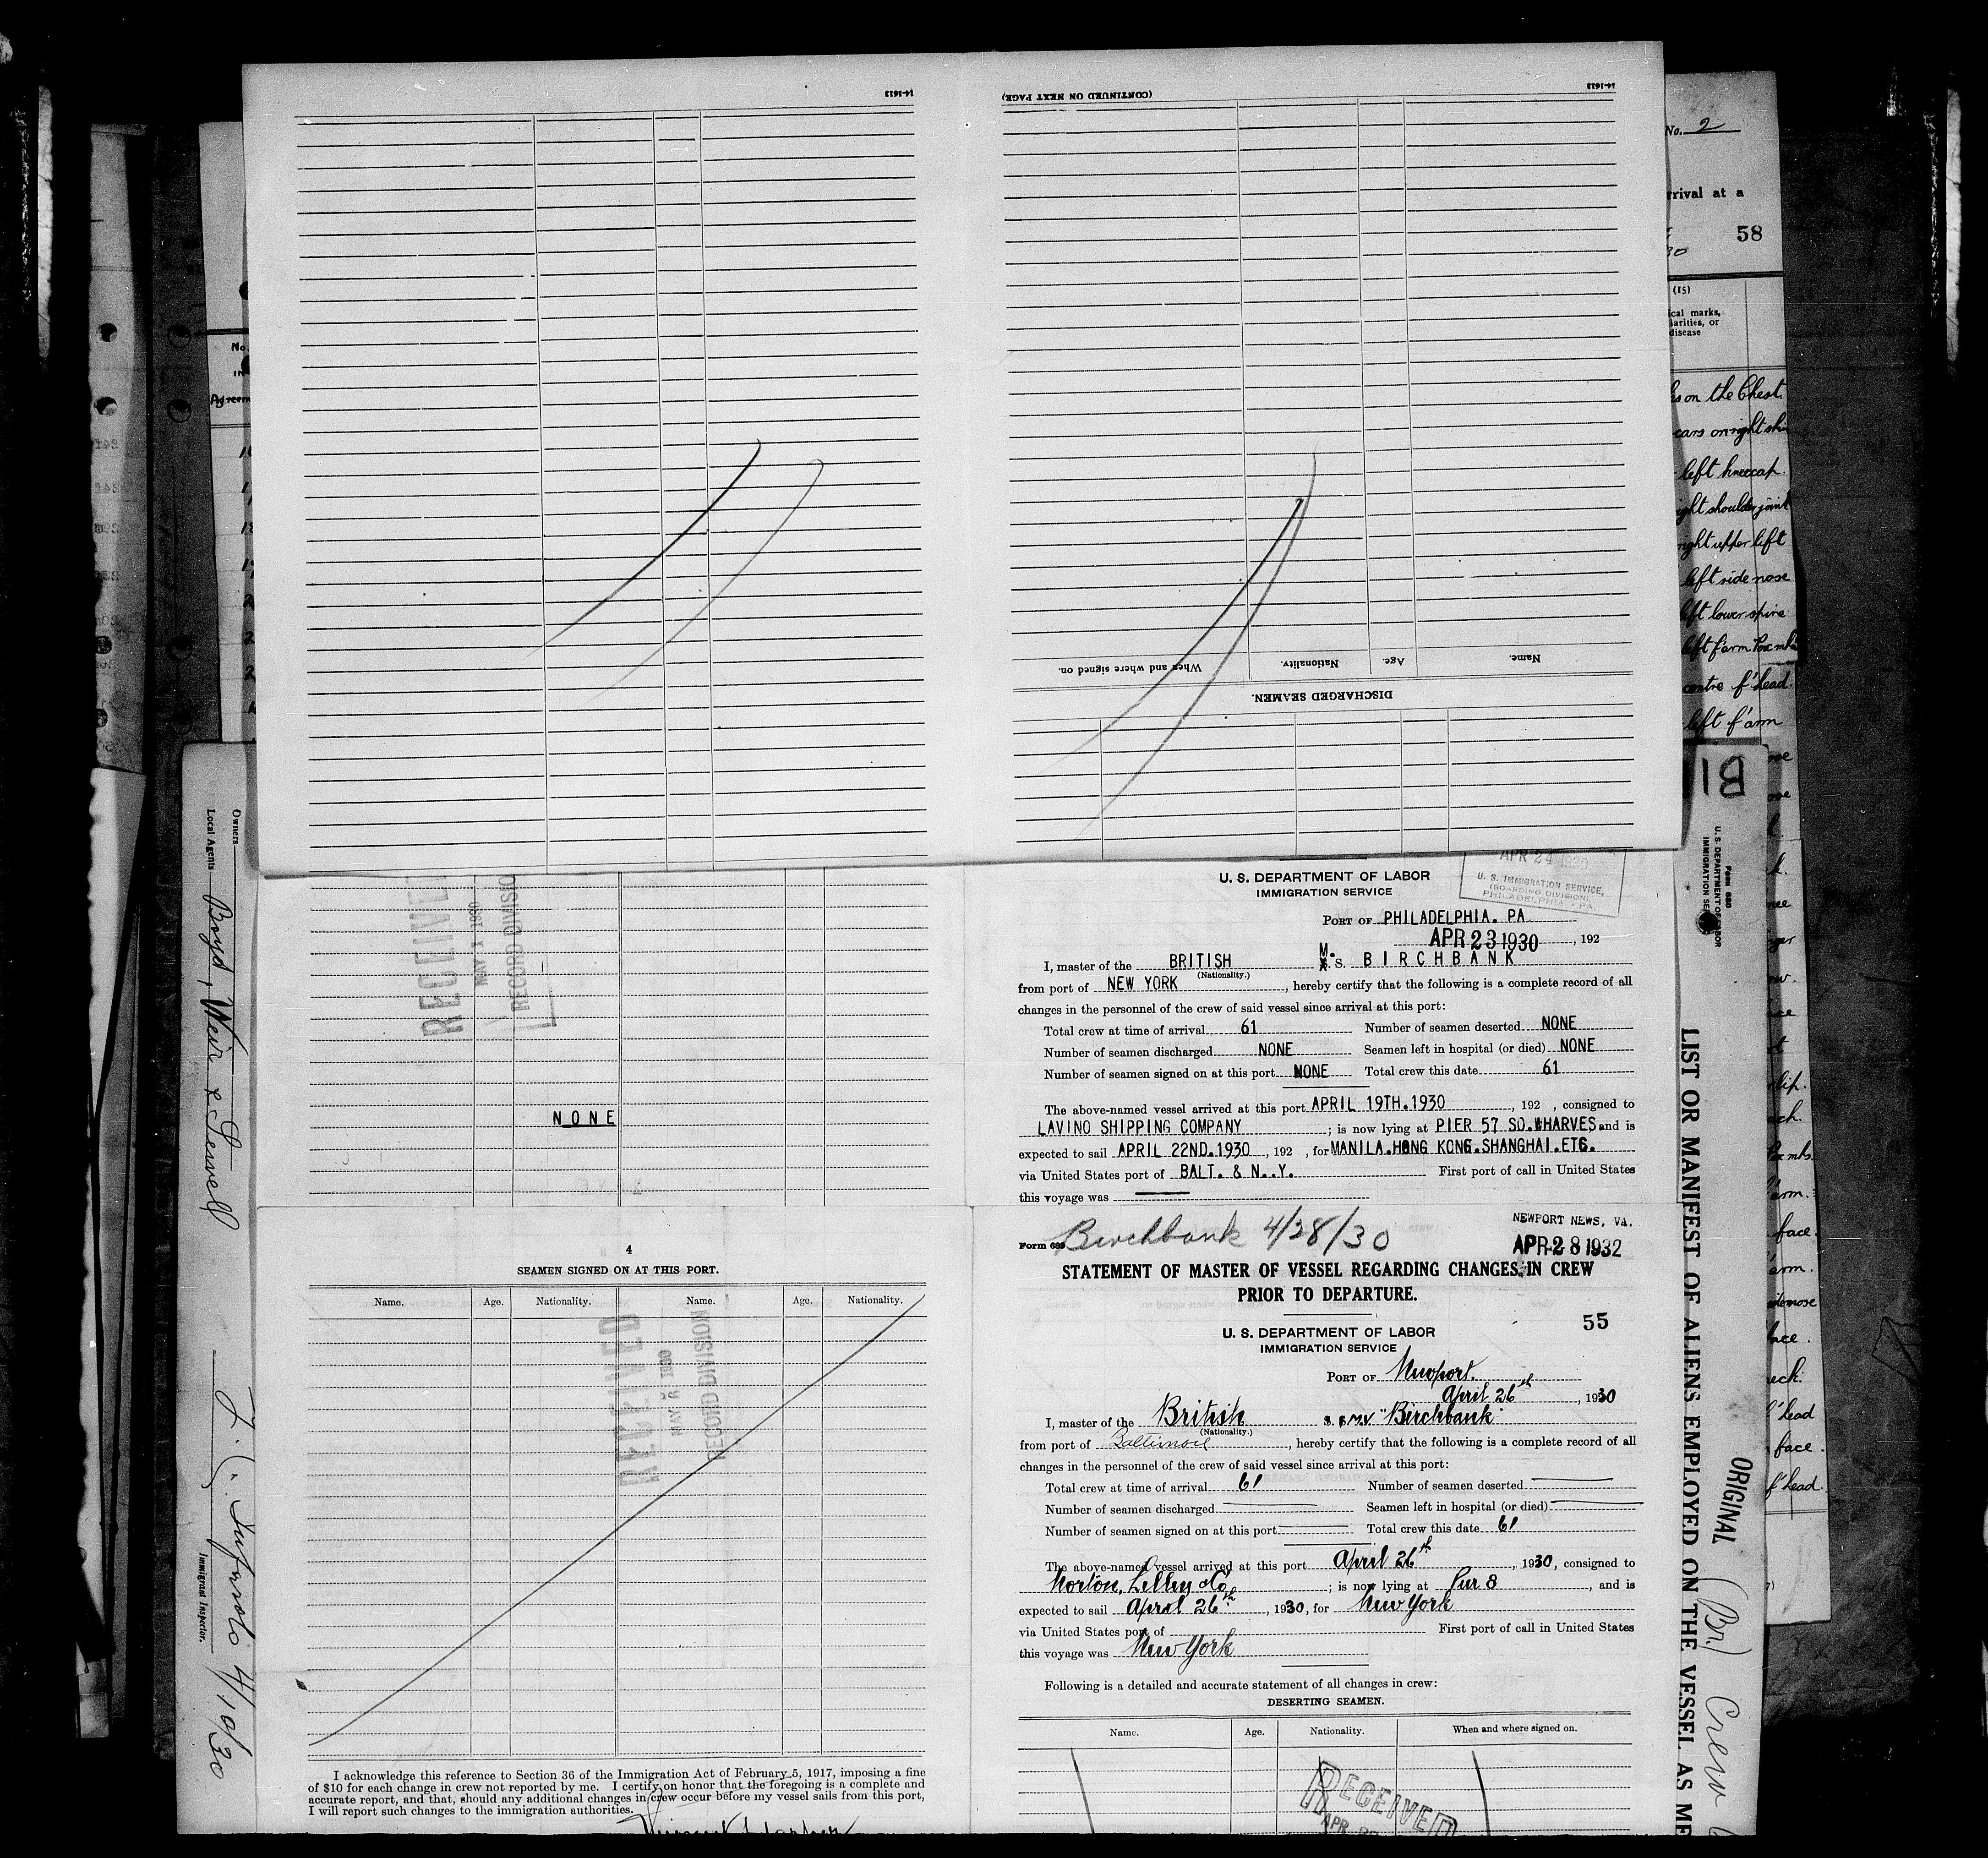 14-1613
(CONTINUED ON NEXT PAGE)
14-1613
When and where signed on.
Nationality.
Age.
Name.
DISCHARGED SEAMEN.
No. 2
rrival at a
30
58
(15)
ical marks,
larities, or
disease
on the Chest.
cars on right shin
left kneecap.
ight shoulder joint
right upper left
left side nose
left lower spine
left f'arm
centre f'head.
left f'arm
No.
IN
Agreem
BI
Form 680
U. S. DEPARTMENT OF LABOR
IMMIGRATION SE
LIST OR MANIFEST OF ALIENS EMPLOYED ON THE VESSEL AS ME
ORIGINAL
(Br)
Crew
face.
arm.
face.
f'head
face.
f'head.
Owners
Local Agents Boyd, Weir & Sewell
Immigrant Inspector.
4/10/30
RECEIVED
MAY 1 1930
RECORD DIVISIO
NONE
APR 24 1930
U. S. IMMIGRATION SERVICE,
(BOARDING DIVISION)
PHILADELPHIA - PA.
U. S. DEPARTMENT OF LABOR
IMMIGRATION SERVICE
PORT OF PHILADELPHIA. PA
APR 23 1930, 192
I, master of the BRITISH M. S. BIRCHBANK
(Nationality.)
from port of NEW YORK, hereby certify that the following is a complete record of all
changes in the personnel of the crew of said vessel since arrival at this port:
Total crew at time of arrival 61 Number of seamen deserted NONE
Number of seamen discharged NONE Seamen left in hospital (or died) NONE
Number of seamen signed on at this port NONE Total crew this date 61
The above-named vessel arrived at this port APRIL 19TH.1930, 192 , consigned to
LAVINO SHIPPING COMPANY ; is now lying at PIER 57 SO.WHARVES and is
expected to sail APRIL 22ND.1930, 192 , for MANILA.HONG KONG.SHANGHAI.ETC.
via United States port of BALT. & N..Y. First port of call in United States
this voyage was
Form 689 Birchbank 4/28/30
NEWPORT NEWS, VA.
APR 28 1932
STATEMENT OF MASTER OF VESSEL REGARDING CHANGES IN CREW
PRIOR TO DEPARTURE.
55
U. S. DEPARTMENT OF LABOR
IMMIGRATION SERVICE
PORT OF Newport.
April 26th, 1930
I, master of the British S. S. M.V. "Birchbank"
(Nationality.)
from port of Baltimore, hereby certify that the following is a complete record of all
changes in the personnel of the crew of said vessel since arrival at this port:
Total crew at time of arrival 61 Number of seamen deserted
Number of seamen discharged Seamen left in hospital (or died)
Number of seamen signed on at this port Total crew this date 61
The above-named vessel arrived at this port April 26th, 1930, consigned to
Norton, Lilley & Co ; is now lying at Pier 8, and is
expected to sail April 26th, 1930, for New York
via United States port of First port of call in United States
this voyage was New York
Following is a detailed and accurate statement of all changes in crew:
DESERTING SEAMEN.
Name. Age. Nationality. When and where signed on.
RECEIVED
APR
4
SEAMEN SIGNED ON AT THIS PORT.
Name. Age. Nationality. Name. Age. Nationality.
RECEIVED
MAY 1930
RECORD DIVISION
I acknowledge this reference to Section 36 of the Immigration Act of February 5, 1917, imposing a fine
of $10 for each change in crew not reported by me. I certify on honor that the foregoing is a complete and
accurate report, and that, should any additional changes in crew occur before my vessel sails from this port,
I will report such changes to the immigration authorities.